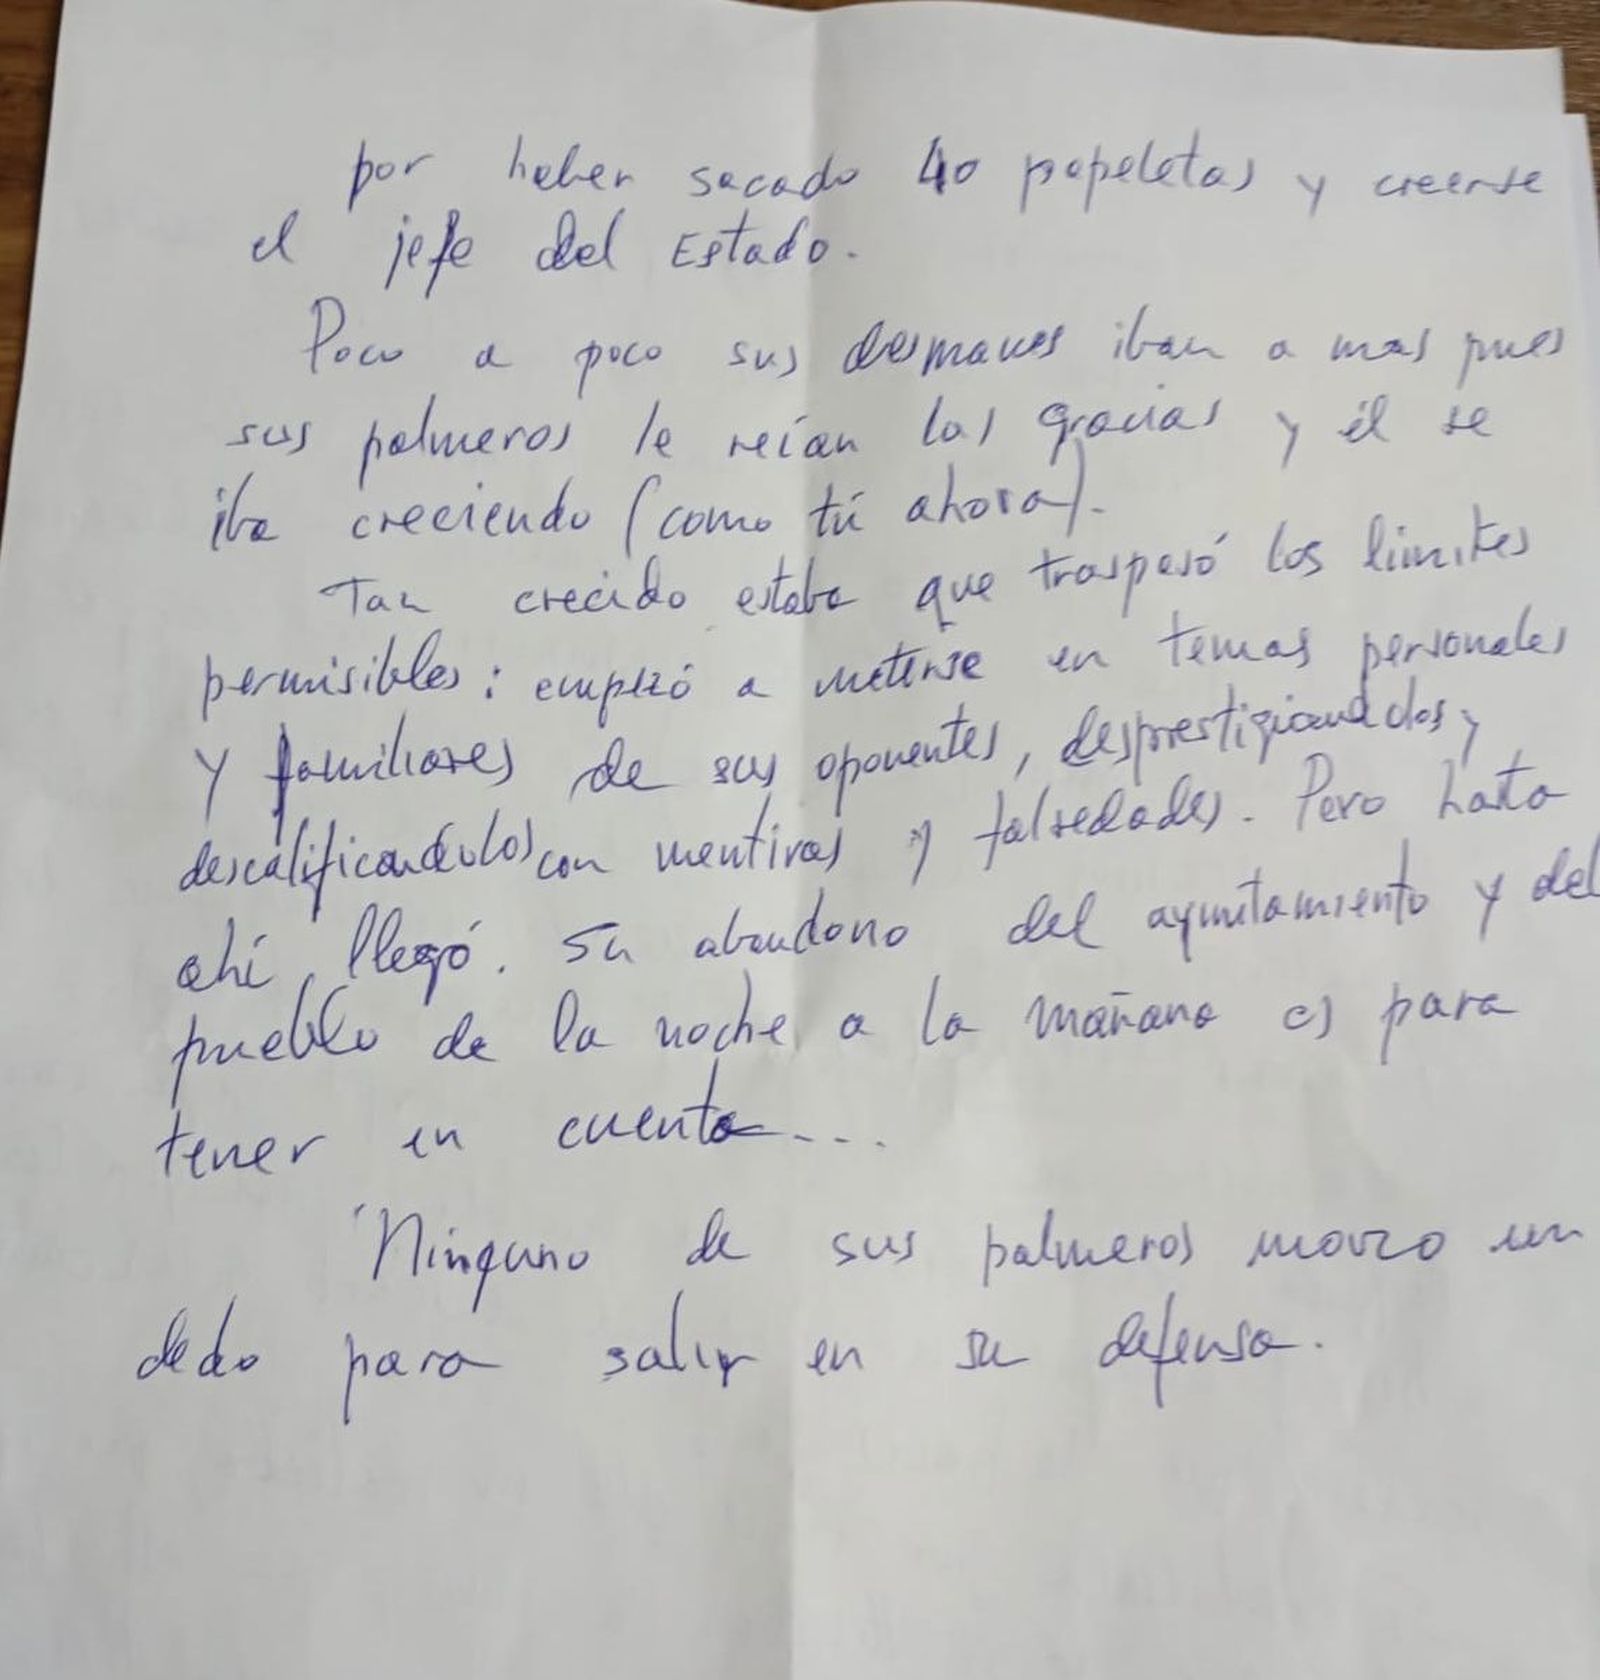 por haber sacado 40 papeletas y creerse
el jefe del Estado.
Poco a poco sus desmanes iban a mas pues
sus palmeros le reían las gracias y él se
iba creciendo (como tú ahora).
Tan crecido estaba que traspasó los límites
permisibles: empezó a meterse en temas personales
y familiares de sus oponentes, desprestigiandolos y
descalificandolos con mentiras y falsedades. Pero hasta
ahí llegó. Su abandono del ayuntamiento y del
pueblo de la noche a la mañana es para
tener en cuenta....
Ninguno de sus palmeros movio un
dedo para salir en su defensa.